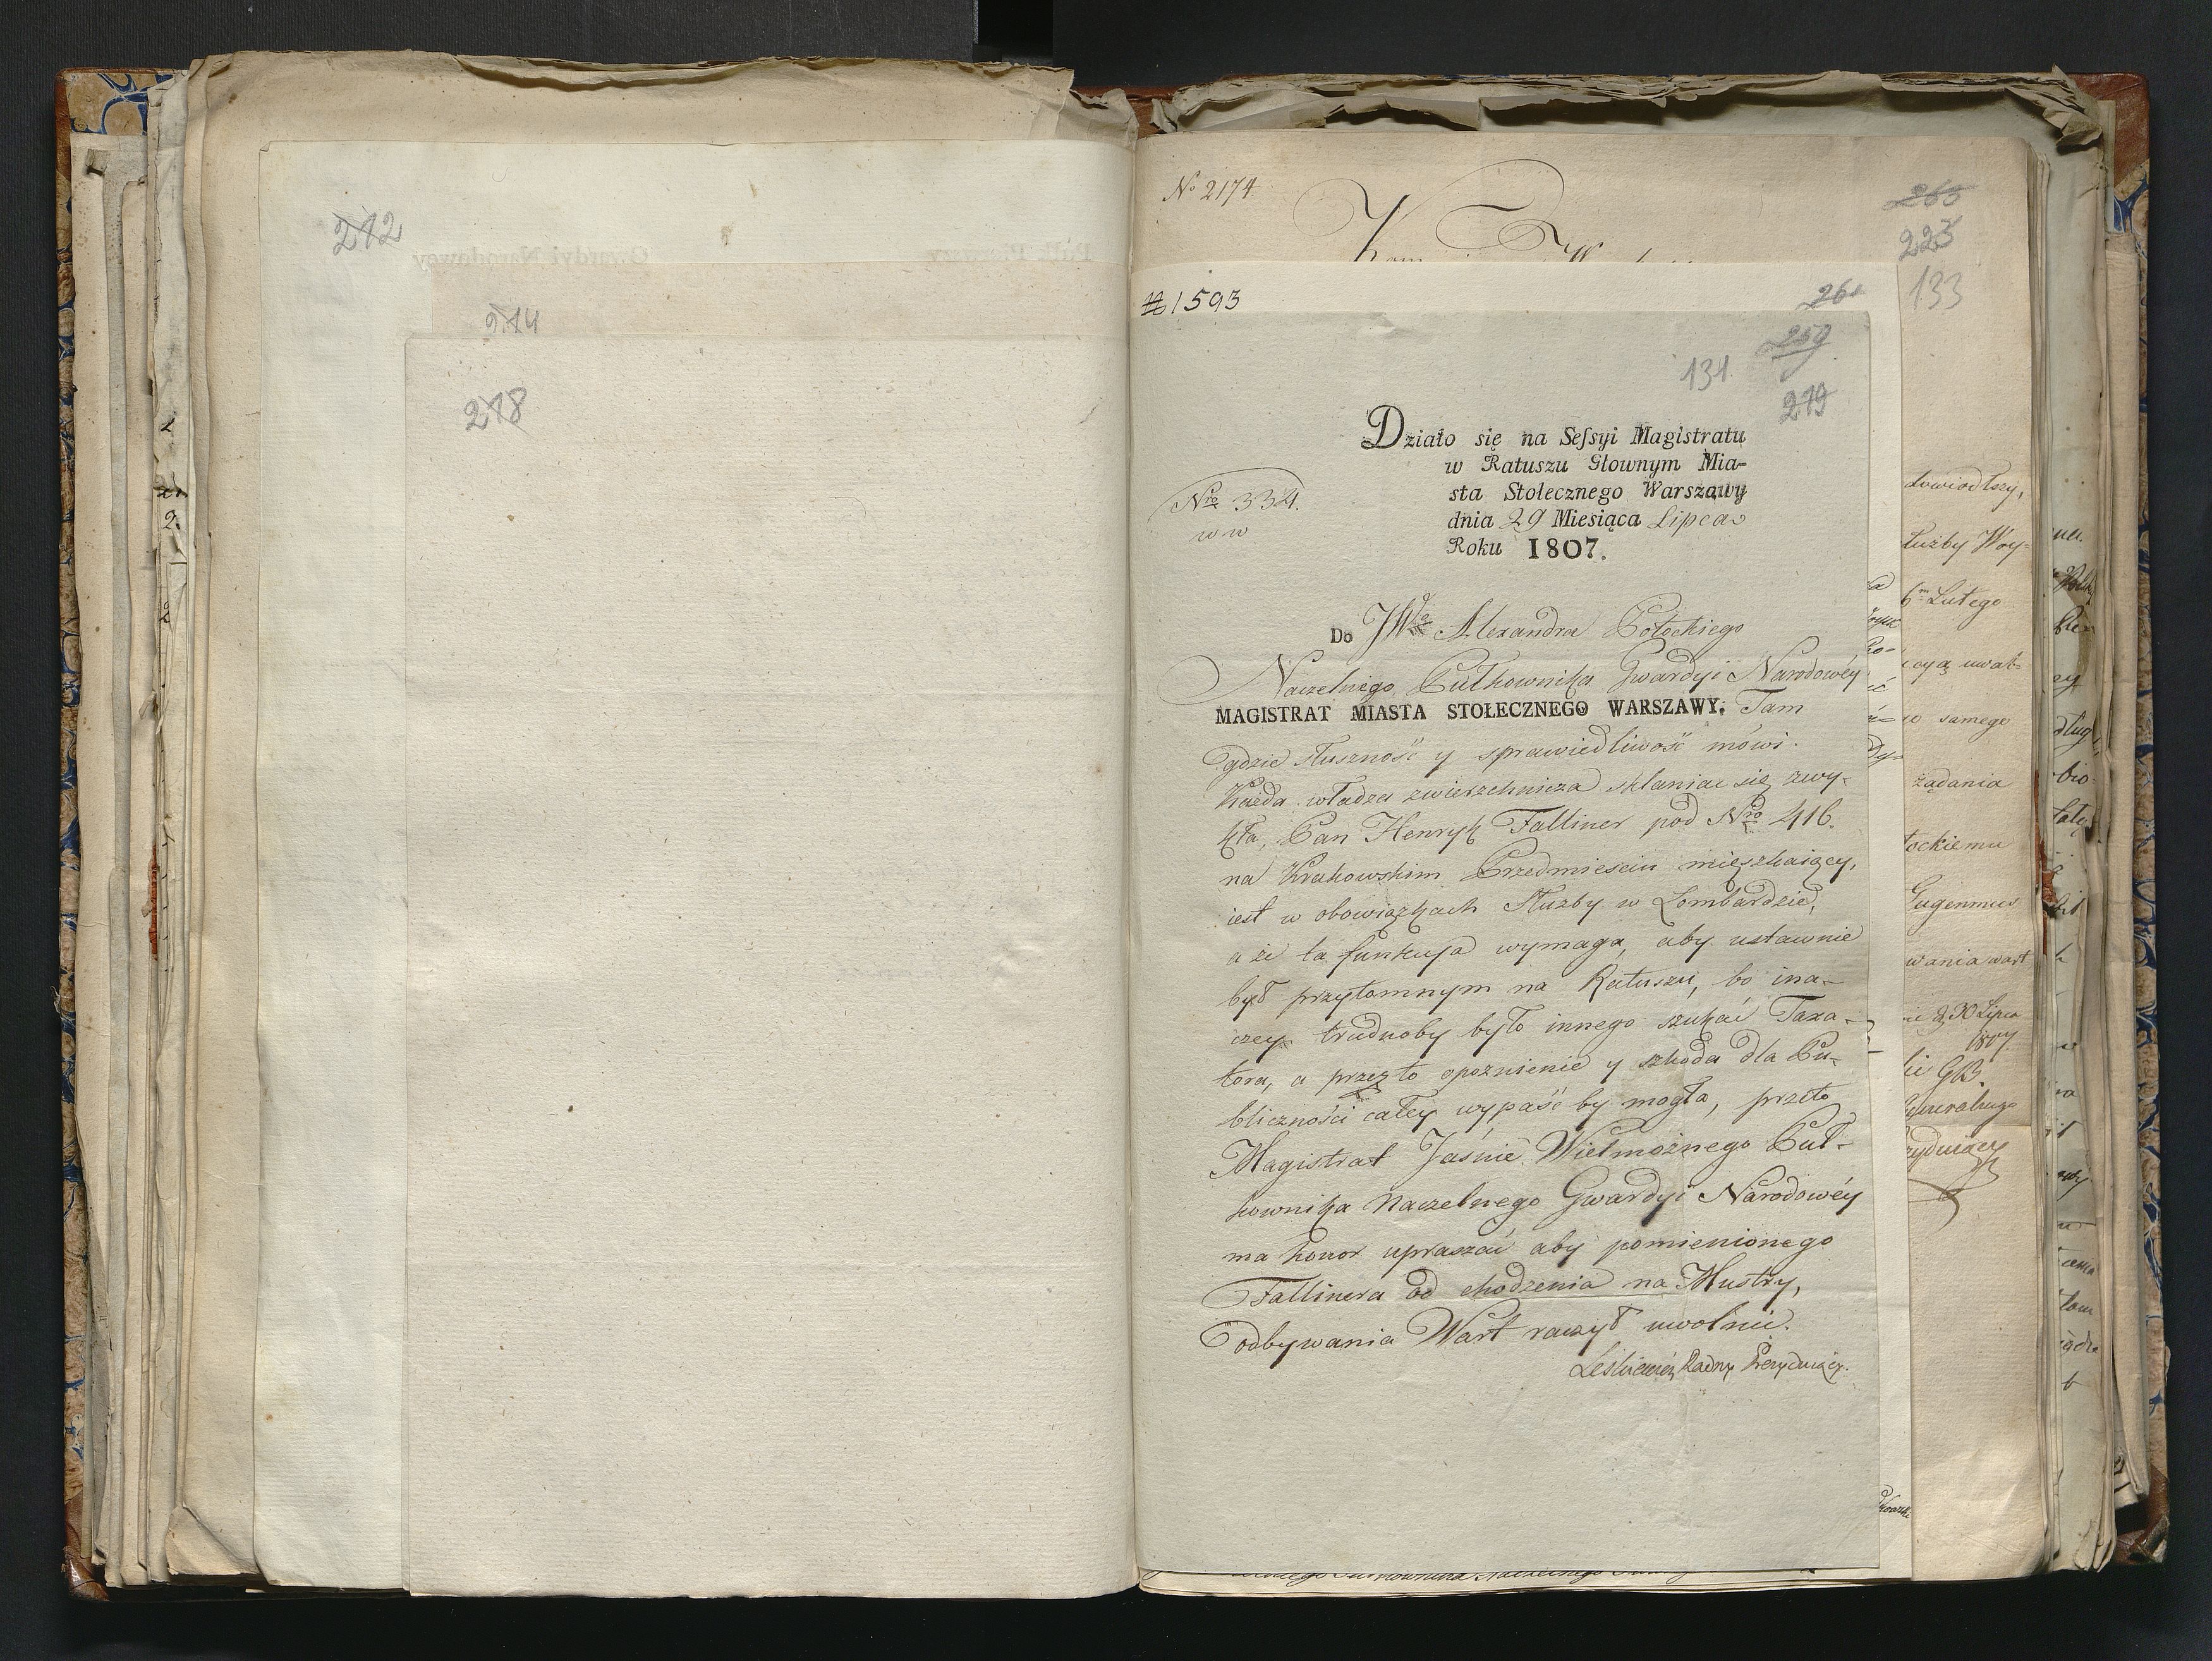 212
214
218
No 2174
260
223
133
1593
261
131
259
219
Działo się na Seſsyi Magistratu
w Ratuszu Głownym Mia-
sta Stołecznego Warszawy
dnia 29 Miesiąca Lipca
Roku 1807.
Nro 334.
w w
Do JWo Alexandra Potockiego
Naczelnego Pułkownika Gwardyi Narodowéy
MAGISTRAT MIASTA STOŁECZNEGO WARSZAWY. Tam
gdzie słuszność y sprawiedliwość mówi.
Każda władza zwierzchnicza skłaniac się zwy-
kła, Pan Henryk Falliner pod Nro 416.
na Krakowskim Przedmiesciu mięszkaiący,
iest w obowiązkach Służby w Lombardzie,
a że ta funkcya wymaga, aby ustawnie
był przytomnym na Ratuszu, bo ina-
czey trudnoby było innego szukać Taxa-
tora, a przez to opoznienie y szkoda dla Pu-
bliczności całey wypaść by mogła, przeto
Magistrat Jaśnie Wielmożnego Puł-
kownika Naczelnego Gwardyi Narodowéy
ma honor upraszać aby pomienionego
Fallinera od chodzenia na Mustry,
odbywania Wart raczył uwolnić.
Leśkiewicz Radny Prezyduiący.
dowiodłszy,
łużby Woy-
Lutego
samego
żądania
tockiemu
Eugenius
wania wart
30 Lipca
1807